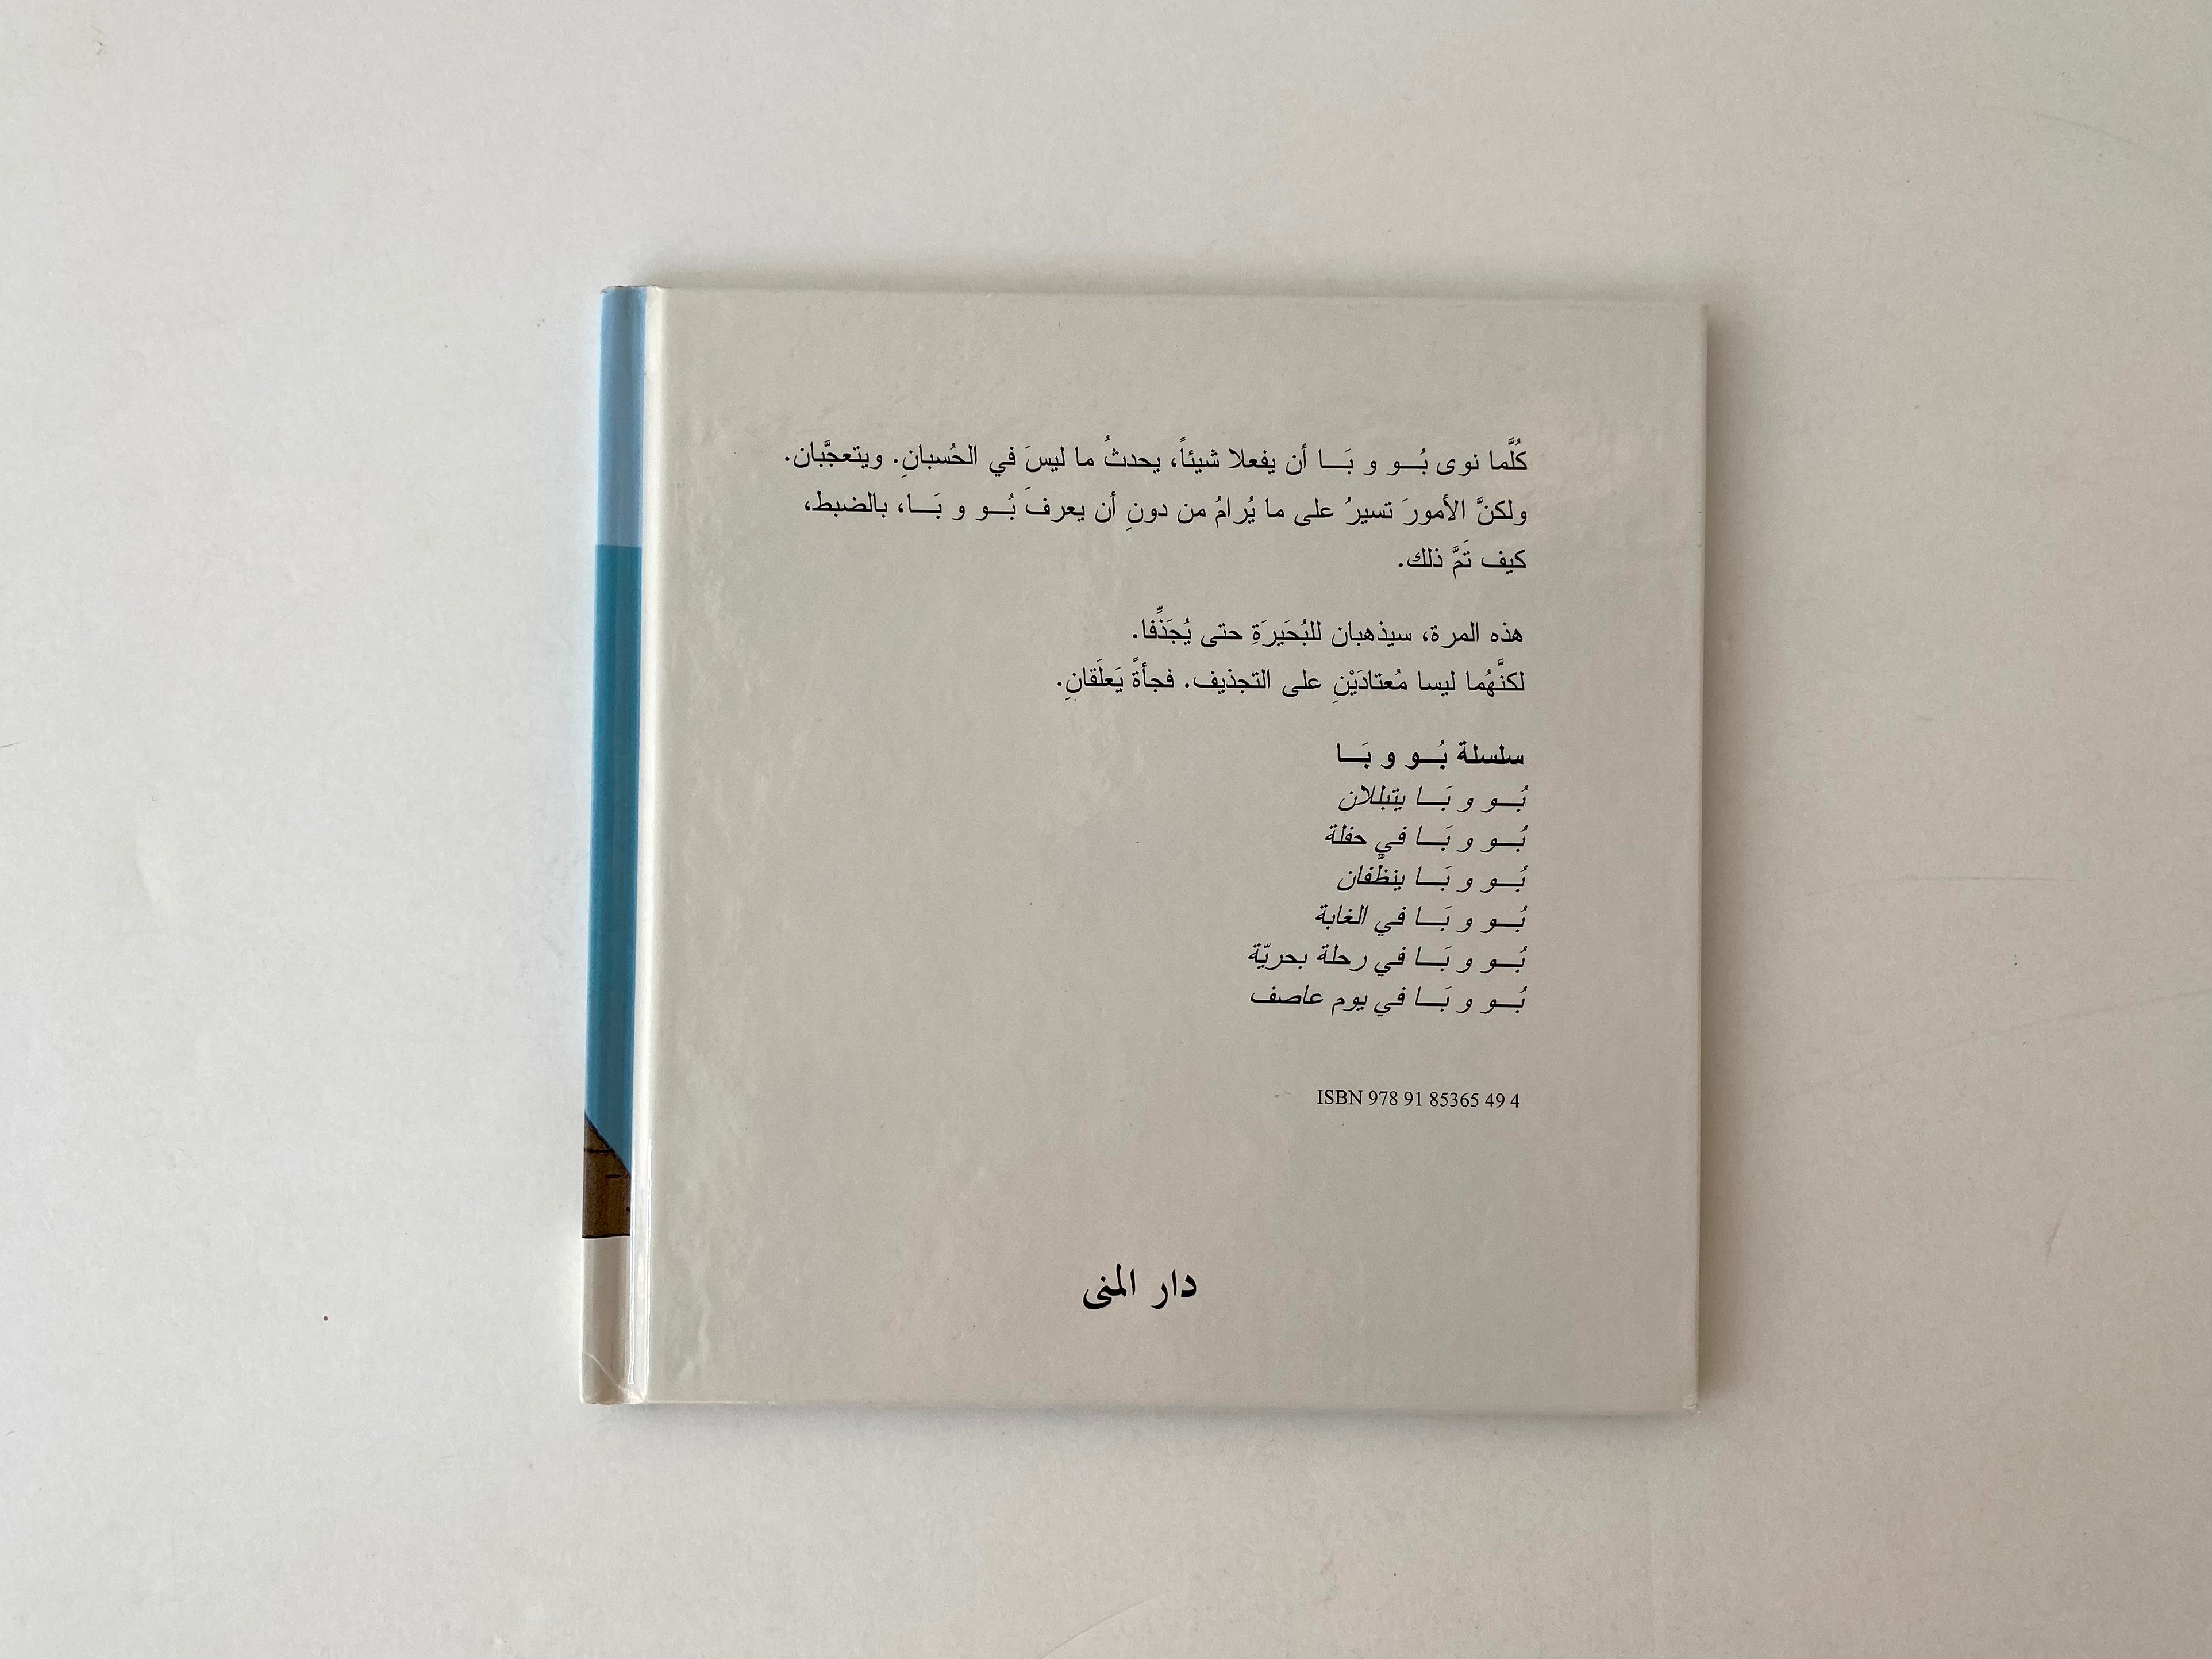 كُلَّما نوى بُـــو و بَـــا أن يفعلا شيئاً، يحدثُ ما ليسَ في الحُسبانِ. ويتعجَّبان.
ولكنَّ الأمورَ تسيرُ على ما يُرامُ من دونِ أن يعرفَ بُـــو و بَـــا، بالضبط،
كيف تَمَّ ذلك.
هذه المرة، سيذهبان للبُحَيرَةِ حتى يُجَذِّفا.
لكنَّهُما ليسا مُعتادَيْنِ على التجذيف. فجأةً يَعلَقانِ.
سلسلة بُـــو و بَـــا
بُـــو و بَـــا يتبللان
بُـــو و بَـــا في حفلة
بُـــو و بَـــا ينظِّفان
بُـــو و بَـــا في الغابة
بُـــو و بَـــا في رحلة بحريّة
بُـــو و بَـــا في يوم عاصف
ISBN 978 91 85365 49 4
دار المنى